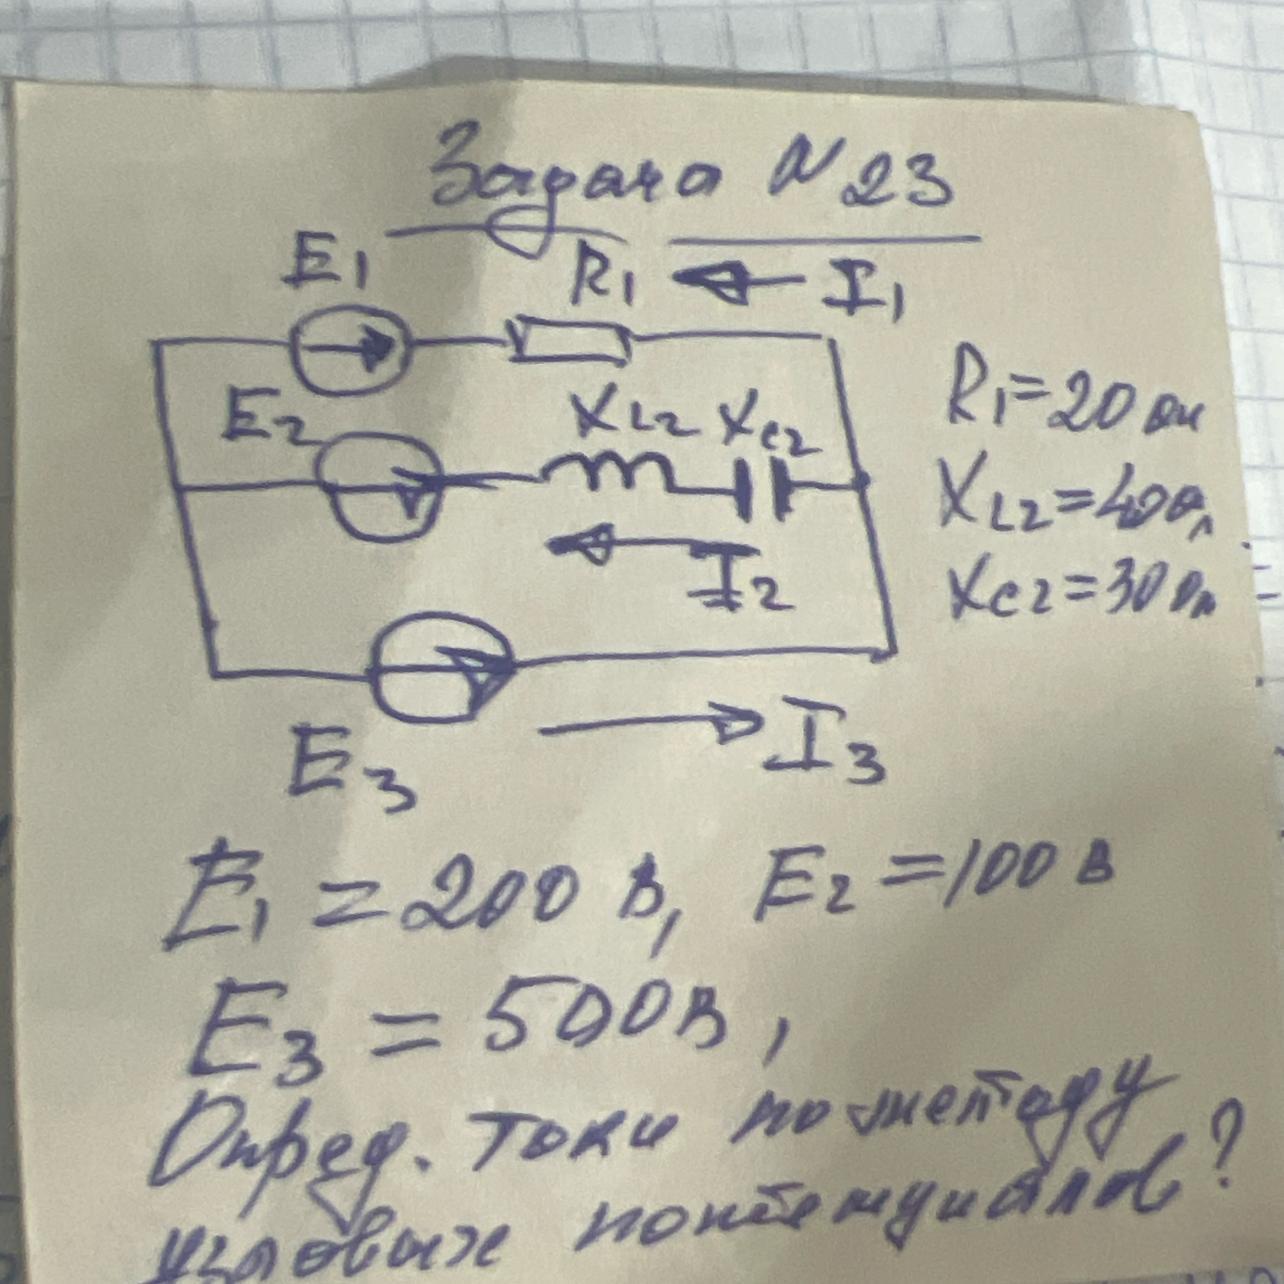 Задача № 23
E1 R1 I1
E2 XL2 XC2
R1=20 ом
XL2=40 ом
I2
XC2=30 ом
E3 I3
E1 = 200 В, E2 = 100 В
E3 = 500 В,
Опред. токи по методу
узловых потенциалов?